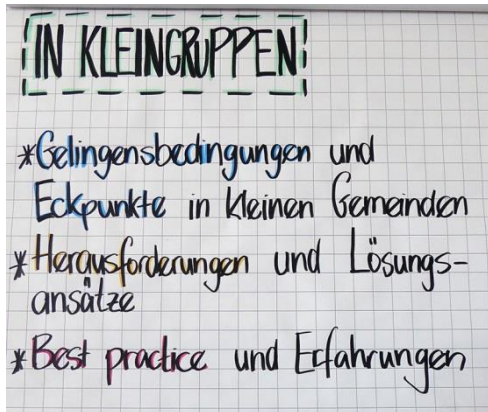 IN KLEINGRUPPEN
*Gelingensbedingungen und
Eckpunkte in kleinen Gemeinden
*Herausforderungen und Lösungs-
ansätze
*Best practice und Erfahrungen